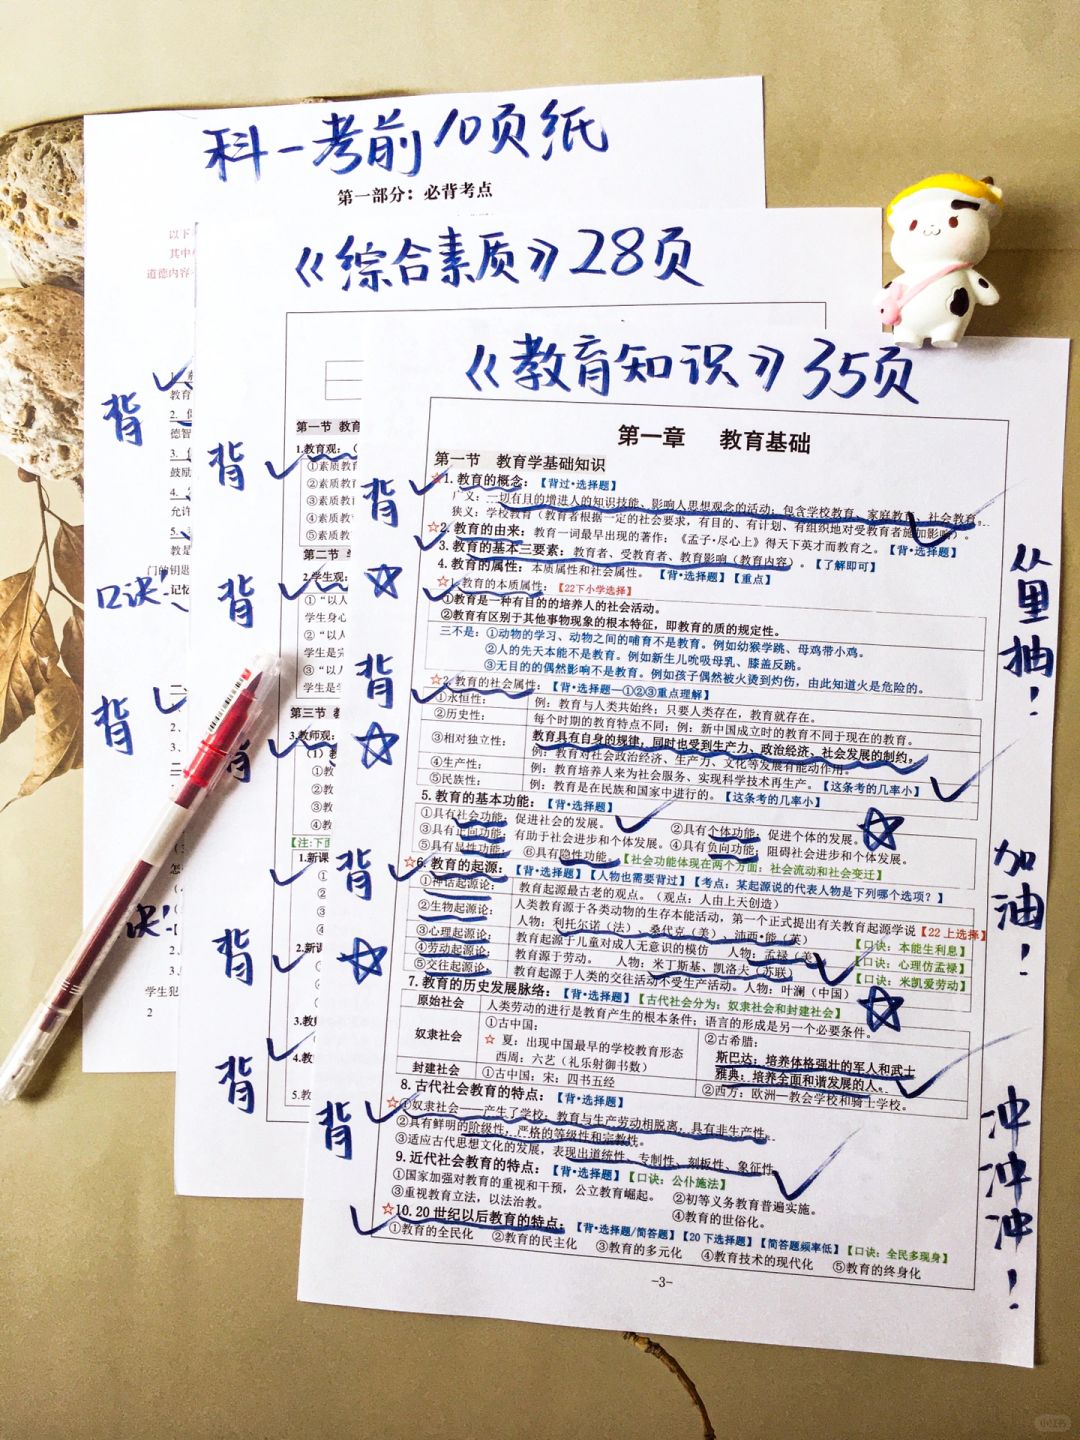 科一考前10页纸
第一部分：必背考点
以下
其中
道德内容
教育
2.
德智
3.
鼓励
4.
允许
5.
教是
门的钥匙
记忆
背
口诀!
背
诀!
学生犯
2
《综合素质》28页
第一节 教育
1.教育观：（
①素质教育
②素质教育
③素质教育
④素质教
⑤素质教
第二节 学
2.学生观：
①“以人
学生身心
②“以人
学生是完
③“以人
学生是学
第三节 教
3.教师观：
（1）教
①教
②教
③教
④教
【注:下面
1.新课
2.新课
3.教师
4.教
5.教
背
背
背
背
背
《教育知识》35页
第一章 教育基础
第一节 教育学基础知识
☆1. 教育的概念：【背过·选择题】
广义：一切有目的增进人的知识技能、影响人思想观念的活动；包含学校教育、家庭教育、社会教育。
狭义：学校教育（教育者根据一定的社会要求，有目的、有计划、有组织地对受教育者施加影响）。
☆2. 教育的由来：教育一词最早出现的著作：《孟子·尽心上》得天下英才而教育之。【背·选择题】
3. 教育的基本三要素：教育者、受教育者、教育影响（教育内容）。【了解即可】
4. 教育的属性：本质属性和社会属性。【背·选择题】【重点】
☆1. 教育的本质属性：【22下小学选择】
①教育是一种有目的的培养人的社会活动。
②教育有区别于其他事物现象的根本特征，即教育的质的规定性。
三不是：①动物的学习、动物之间的哺育不是教育。例如幼猴学跳、母鸡带小鸡。
②人的先天本能不是教育。例如新生儿吮吸母乳、膝盖反跳。
③无目的的偶然影响不是教育。例如孩子偶然被火烫到灼伤，由此知道火是危险的。
☆2. 教育的社会属性：【背·选择题—①②③重点理解】
①永恒性： 例：教育与人类共始终；只要人类存在，教育就存在。
②历史性： 每个时期的教育特点不同；例：新中国成立时的教育不同于现在的教育。
③相对独立性： 教育具有自身的规律，同时也受到生产力、政治经济、社会发展的制约。
例：教育对社会政治经济、生产力、文化等发展有能动作用。
④生产性： 例：教育培养人来为社会服务、实现科学技术再生产。【这条考的几率小】
⑤民族性： 例：教育是在民族和国家中进行的。【这条考的几率小】
5. 教育的基本功能：【背·选择题】
①具有社会功能；促进社会的发展。 ②具有个体功能；促进个体的发展。
③具有正向功能；有助于社会进步和个体发展。④具有负向功能；阻碍社会进步和个体发展。
⑤具有显性功能； ⑥具有隐性功能。【社会功能体现在两个方面：社会流动和社会变迁】
☆6. 教育的起源：【背·选择题】【人物也需要背过】【考点：某起源说的代表人物是下列哪个选项？】
①神话起源论： 教育起源最古老的观点。（观点：人由上天创造）
②生物起源论： 人类教育源于各类动物的生存本能活动，第一个正式提出有关教育起源学说【22上选择】
人物：利托尔诺（法）、桑代克（美）、沛西·能（英） 【口诀：本能生利息】
③心理起源论： 教育起源于儿童对成人无意识的模仿 人物：孟禄（美） 【口诀：心理仿孟禄】
④劳动起源论： 教育源于劳动。 人物：米丁斯基、凯洛夫（苏联） 【口诀：米凯爱劳动】
⑤交往起源论： 教育起源于人类的交往活动不受生产活动。人物：叶澜（中国）
7. 教育的历史发展脉络：【背·选择题】【古代社会分为：奴隶社会和封建社会】
原始社会 人类劳动的进行是教育产生的根本条件；语言的形成是另一个必要条件。
奴隶社会 ①古中国：
☆ 夏：出现中国最早的学校教育形态
西周：六艺（礼乐射御书数）
②古希腊：
斯巴达：培养体格强壮的军人和武士
雅典：培养全面和谐发展的人。
封建社会 ①古中国：宋：四书五经 ②西方：欧洲—教会学校和骑士学校。
8. 古代社会教育的特点：【背·选择题】
☆①奴隶社会——产生了学校；教育与生产劳动相脱离，具有非生产性。
②具有鲜明的阶级性，严格的等级性和宗教性。
③适应古代思想文化的发展，表现出道统性、专制性、刻板性、象征性
9. 近代社会教育的特点：【背·选择题】【口诀：公仆施法】
①国家加强对教育的重视和干预，公立教育崛起。 ②初等义务教育普遍实施。
③重视教育立法，以法治教。 ④教育的世俗化。
☆10. 20世纪以后教育的特点：【背·选择题/简答题】【20下选择题】【简答题频率低】【口诀：全民多现身】
①教育的全民化 ②教育的民主化 ③教育的多元化 ④教育技术的现代化 ⑤教育的终身化
-3-
背
背
背
背
从
里
抽！
加
油！
冲
冲
冲！
小红书